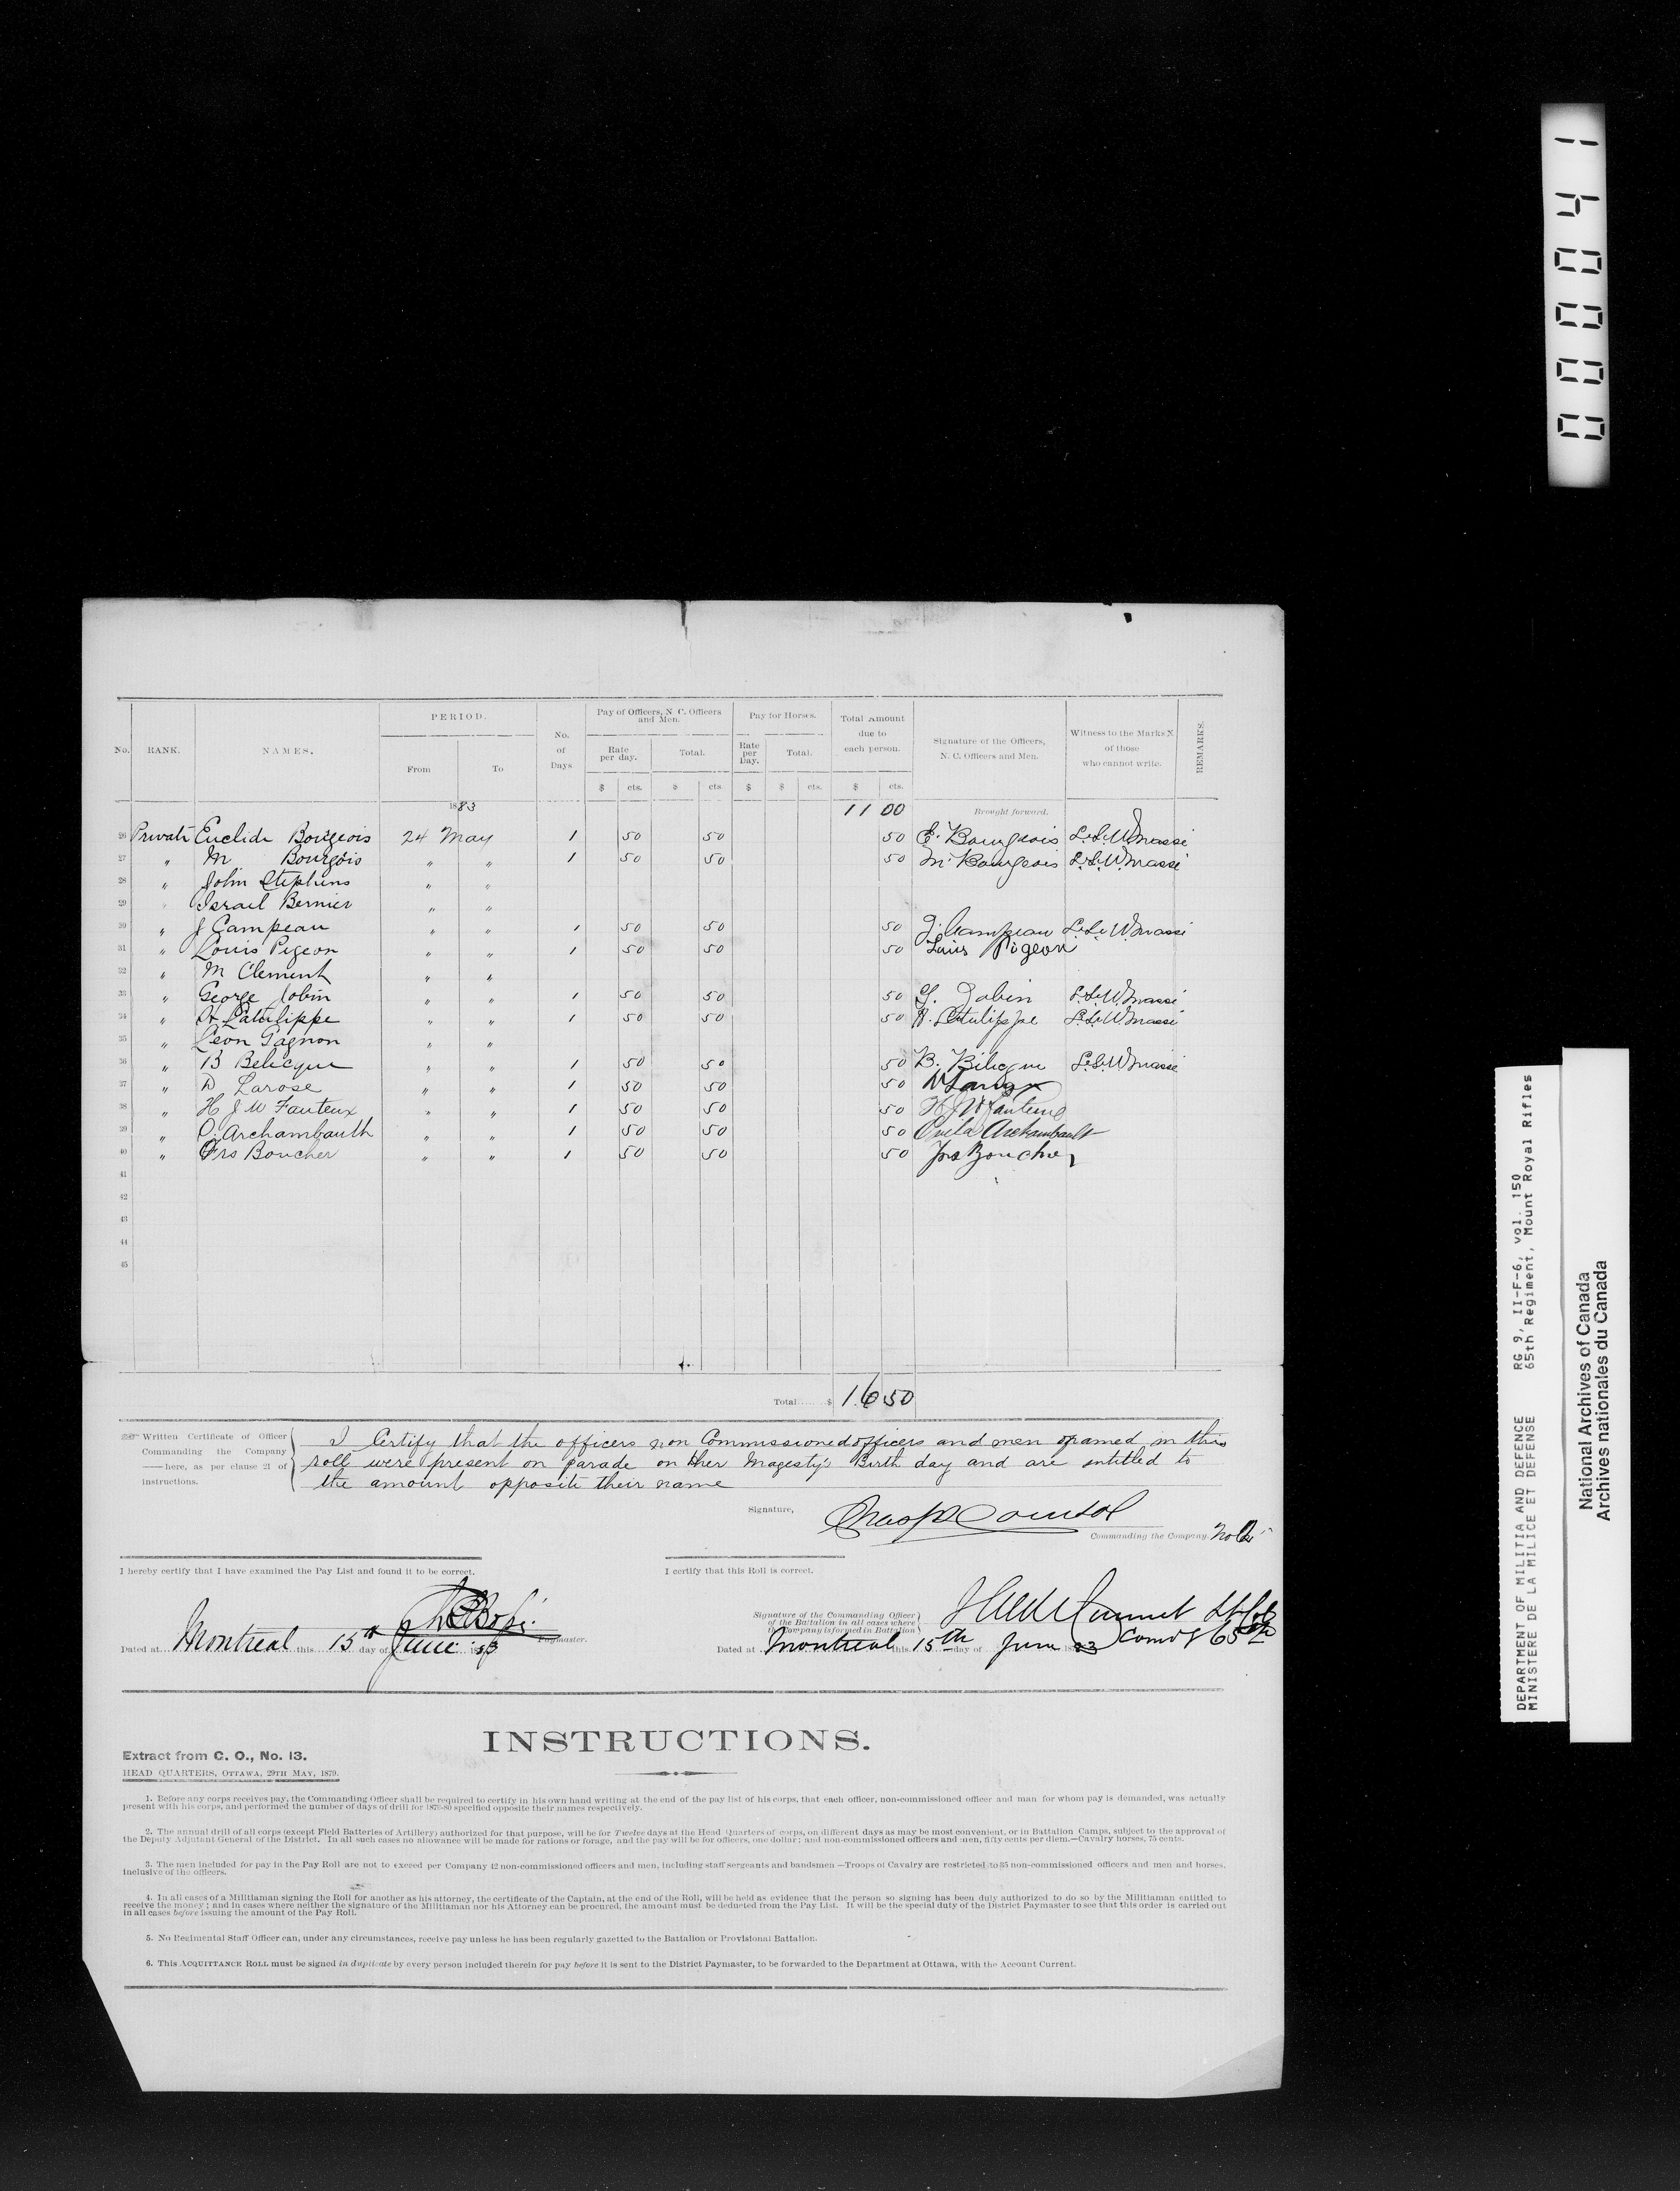 No. RANK. NAMES. PERIOD. From To No. of Days Pay of Officers, N. C. Officers and Men. Rate per day. Total. Pay for Horses. Rate per Day. Total. Total Amount due to each person. Signature of the Officers, N. C. Officers and Men. Witness to the Marks X of those who cannot write. REMARKS.
$ cts. $ cts $ $ cts. $ cts.
1883 11 00 Brought forward.
26 Private Euclide Bourgeois 24 May 1 50 50 50 E. Bourgeois Massé
27 " M Bourgois " " 1 50 50 50 M. Bourgeois Massé
28 " John Stephens " "
29 " Israel Bernier " "
30 " J Campeau " " 1 50 50 50 J. Campeau Massé
31 " Louis Pigeon " " 1 50 50 50 Louis Pigeon
32 " M Clement " "
33 " George Jobin " " 1 50 50 50 G. Jobin Massé
34 " A Latulippe " " 1 50 50 50 A. Latulippe Massé
35 " Leon Gagnon " "
36 " B Belicque " " 1 50 50 50 B. Bilicque Massé
37 " D Larose " " 1 50 50 50
38 " H J W Fauteux " " 1 50 50 50 H J W Fauteux
39 " O. Archambault " " 1 50 50 50 Ovila Archambault
40 " Frs Boucher " " 1 50 50 50 Frs Boucher
41
42
43
44
45
Total...... $ 16 50
Written Certificate of Officer Commanding the Company —— here, as per clause 21 of instructions.
I Certify that the officers non Commissioned officers and men named in this
roll were present on parade on Her Magesty's Birth day and are intitled to
the amount opposite their name
Signature,
Commanding the Company. No
I hereby certify that I have examined the Pay List and found it to be correct.
I certify that this Roll is correct.
Paymaster.
Dated at Montreal this 15th day of June 1883
Signature of the Commanding Officer
of the Battalion in all cases where
the Company is formed in Battalion
Lt Col
Comdg 65th
Dated at Montreal this 15th day of June 83
INSTRUCTIONS.
Extract from C. O., No. 13.
HEAD QUARTERS, OTTAWA, 29TH MAY, 1879.
1. Before any corps receives pay, the Commanding Officer shall be required to certify in his own hand writing at the end of the pay list of his corps, that each officer, non-commissioned officer and man for whom pay is demanded, was actually
present with his corps, and performed the number of days of drill for 1879-80 specified opposite their names respectively.
2. The annual drill of all corps (except Field Batteries of Artillery) authorized for that purpose, will be for Twelve days at the Head Quarters of corps, on different days as may be most convenient, or in Battalion Camps, subject to the approval of
the Deputy Adjutant General of the District. In all such cases no allowance will be made for rations or forage, and the pay will be for officers, one dollar; and non-commissioned officers and men, fifty cents per diem.—Cavalry horses, 75 cents.
3. The men included for pay in the Pay Roll are not to exceed per Company 42 non-commissioned officers and men, including staff sergeants and bandsmen—Troops of Cavalry are restricted to 35 non-commissioned officers and men and horses,
inclusive of the officers.
4. In all cases of a Militiaman signing the Roll for another as his attorney, the certificate of the Captain, at the end of the Roll, will be held as evidence that the person so signing has been duly authorized to do so by the Militiaman entitled to
receive the money; and in cases where neither the signature of the Militiaman nor his Attorney can be procured, the amount must be deducted from the Pay List. It will be the special duty of the District Paymaster to see that this order is carried out
in all cases before issuing the amount of the Pay Roll.
5. No Regimental Staff Officer can, under any circumstances, receive pay unless he has been regularly gazetted to the Battalion or Provisional Battalion.
6. This ACQUITTANCE ROLL must be signed in duplicate by every person included therein for pay before it is sent to the District Paymaster, to be forwarded to the Department at Ottawa, with the Account Current.
000041
DEPARTMENT OF MILITIA AND DEFENCE RG 9, II-F-6, vol. 150
MINISTERE DE LA MILICE ET DEFENSE 65th Regiment, Mount Royal Rifles
National Archives of Canada
Archives nationales du Canada